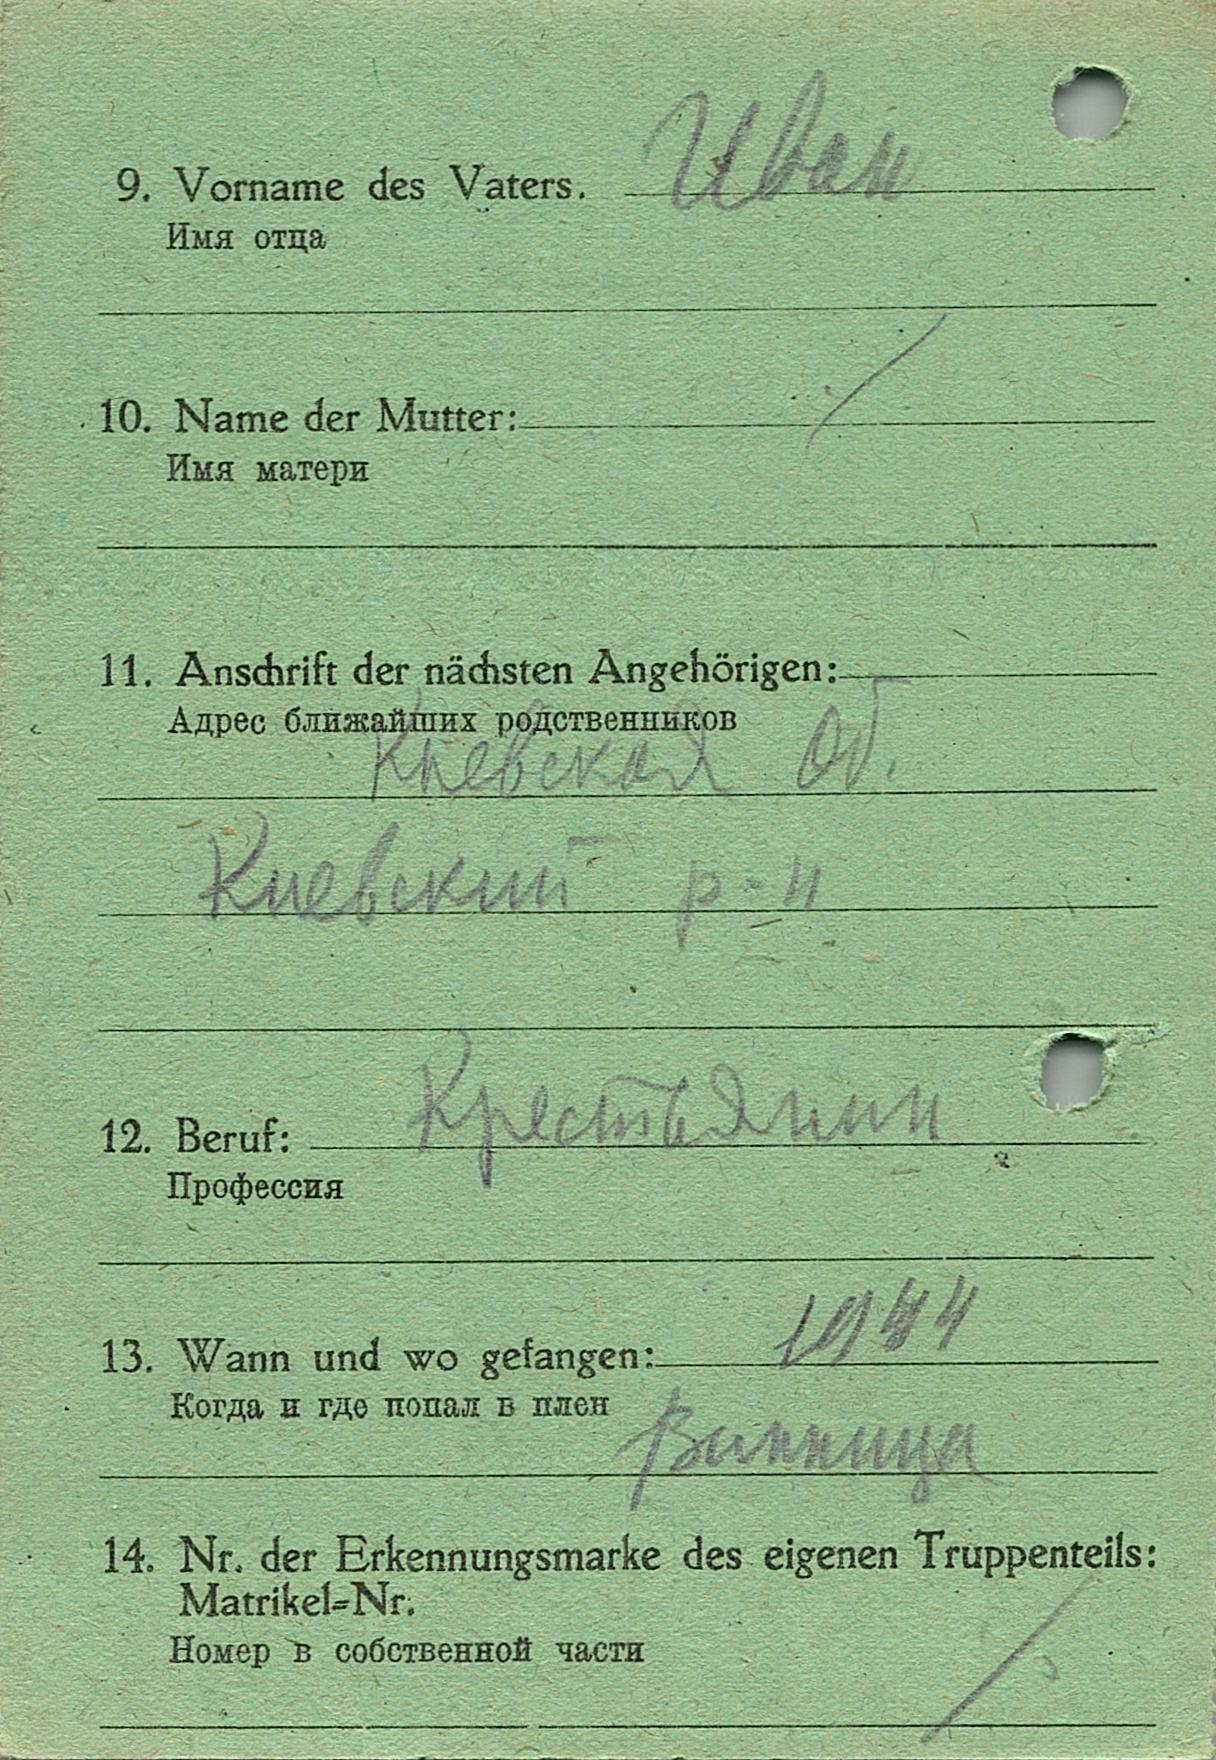 9. Vorname des Vaters. Иван
Имя отца
10. Name der Mutter:
Имя матери
11. Anschrift der nächsten Angehörigen:
Адрес ближайших родственников
Киевская об.
Киевский р-н
12. Beruf: Крестьянин
Профессия
13. Wann und wo gefangen: 1944
Когда и где попал в плен
Винница
14. Nr. der Erkennungsmarke des eigenen Truppenteils:
Matrikel=Nr.
Номер в собственной части